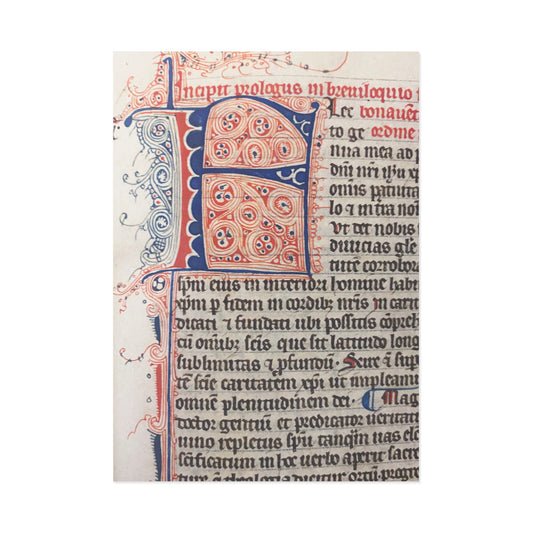 Incipit prologus in breuiloquio
lec bonauēt
to ge ordine
nua mea ad p
dn̄i nr̄i ih̄u xp̄
om̄is pat̄nita
lo ⁊ in t̄ra noī
vt det nobis
diuicias gle
tute corrobora
sp̄m eius in interiori homine habi
xp̄m p fidem in cordibꝫ nr̄is in carit
dicati ⁊ fundati ubi possitis cōpreh
cū om̄ibꝫ sc̄is que sit latitudo long
sublimitas ⁊ p̄fundū. Scire ⁊ sup
tē scīe caritatem xp̄i ut impleami
omnē plenitudinem dei. Mag
doctor gentiū et predicator ueritati
uino repletus sp̄u tanqȝ uas ele
sc̄ificatum in hoc uerbo aperit sacre
ture q̄ theologia dicitur ortū progre